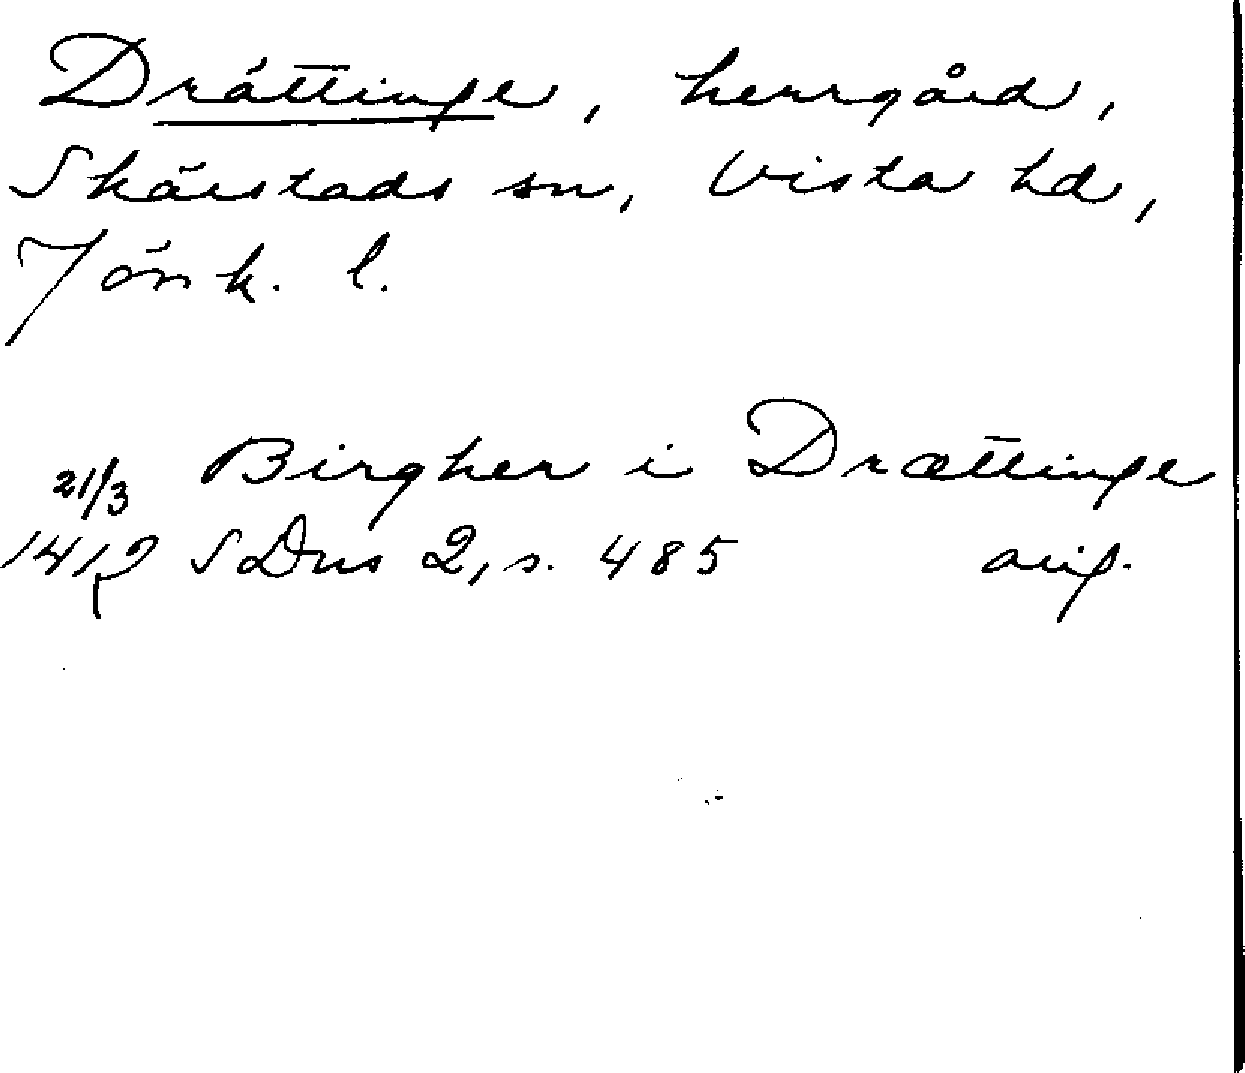 Drättinge, herrgård,
Skärstads sn, Vista hd,
Jönk. l.
21/3 Birgher i Drættinge
1412 SDns 2, s. 485 avig.